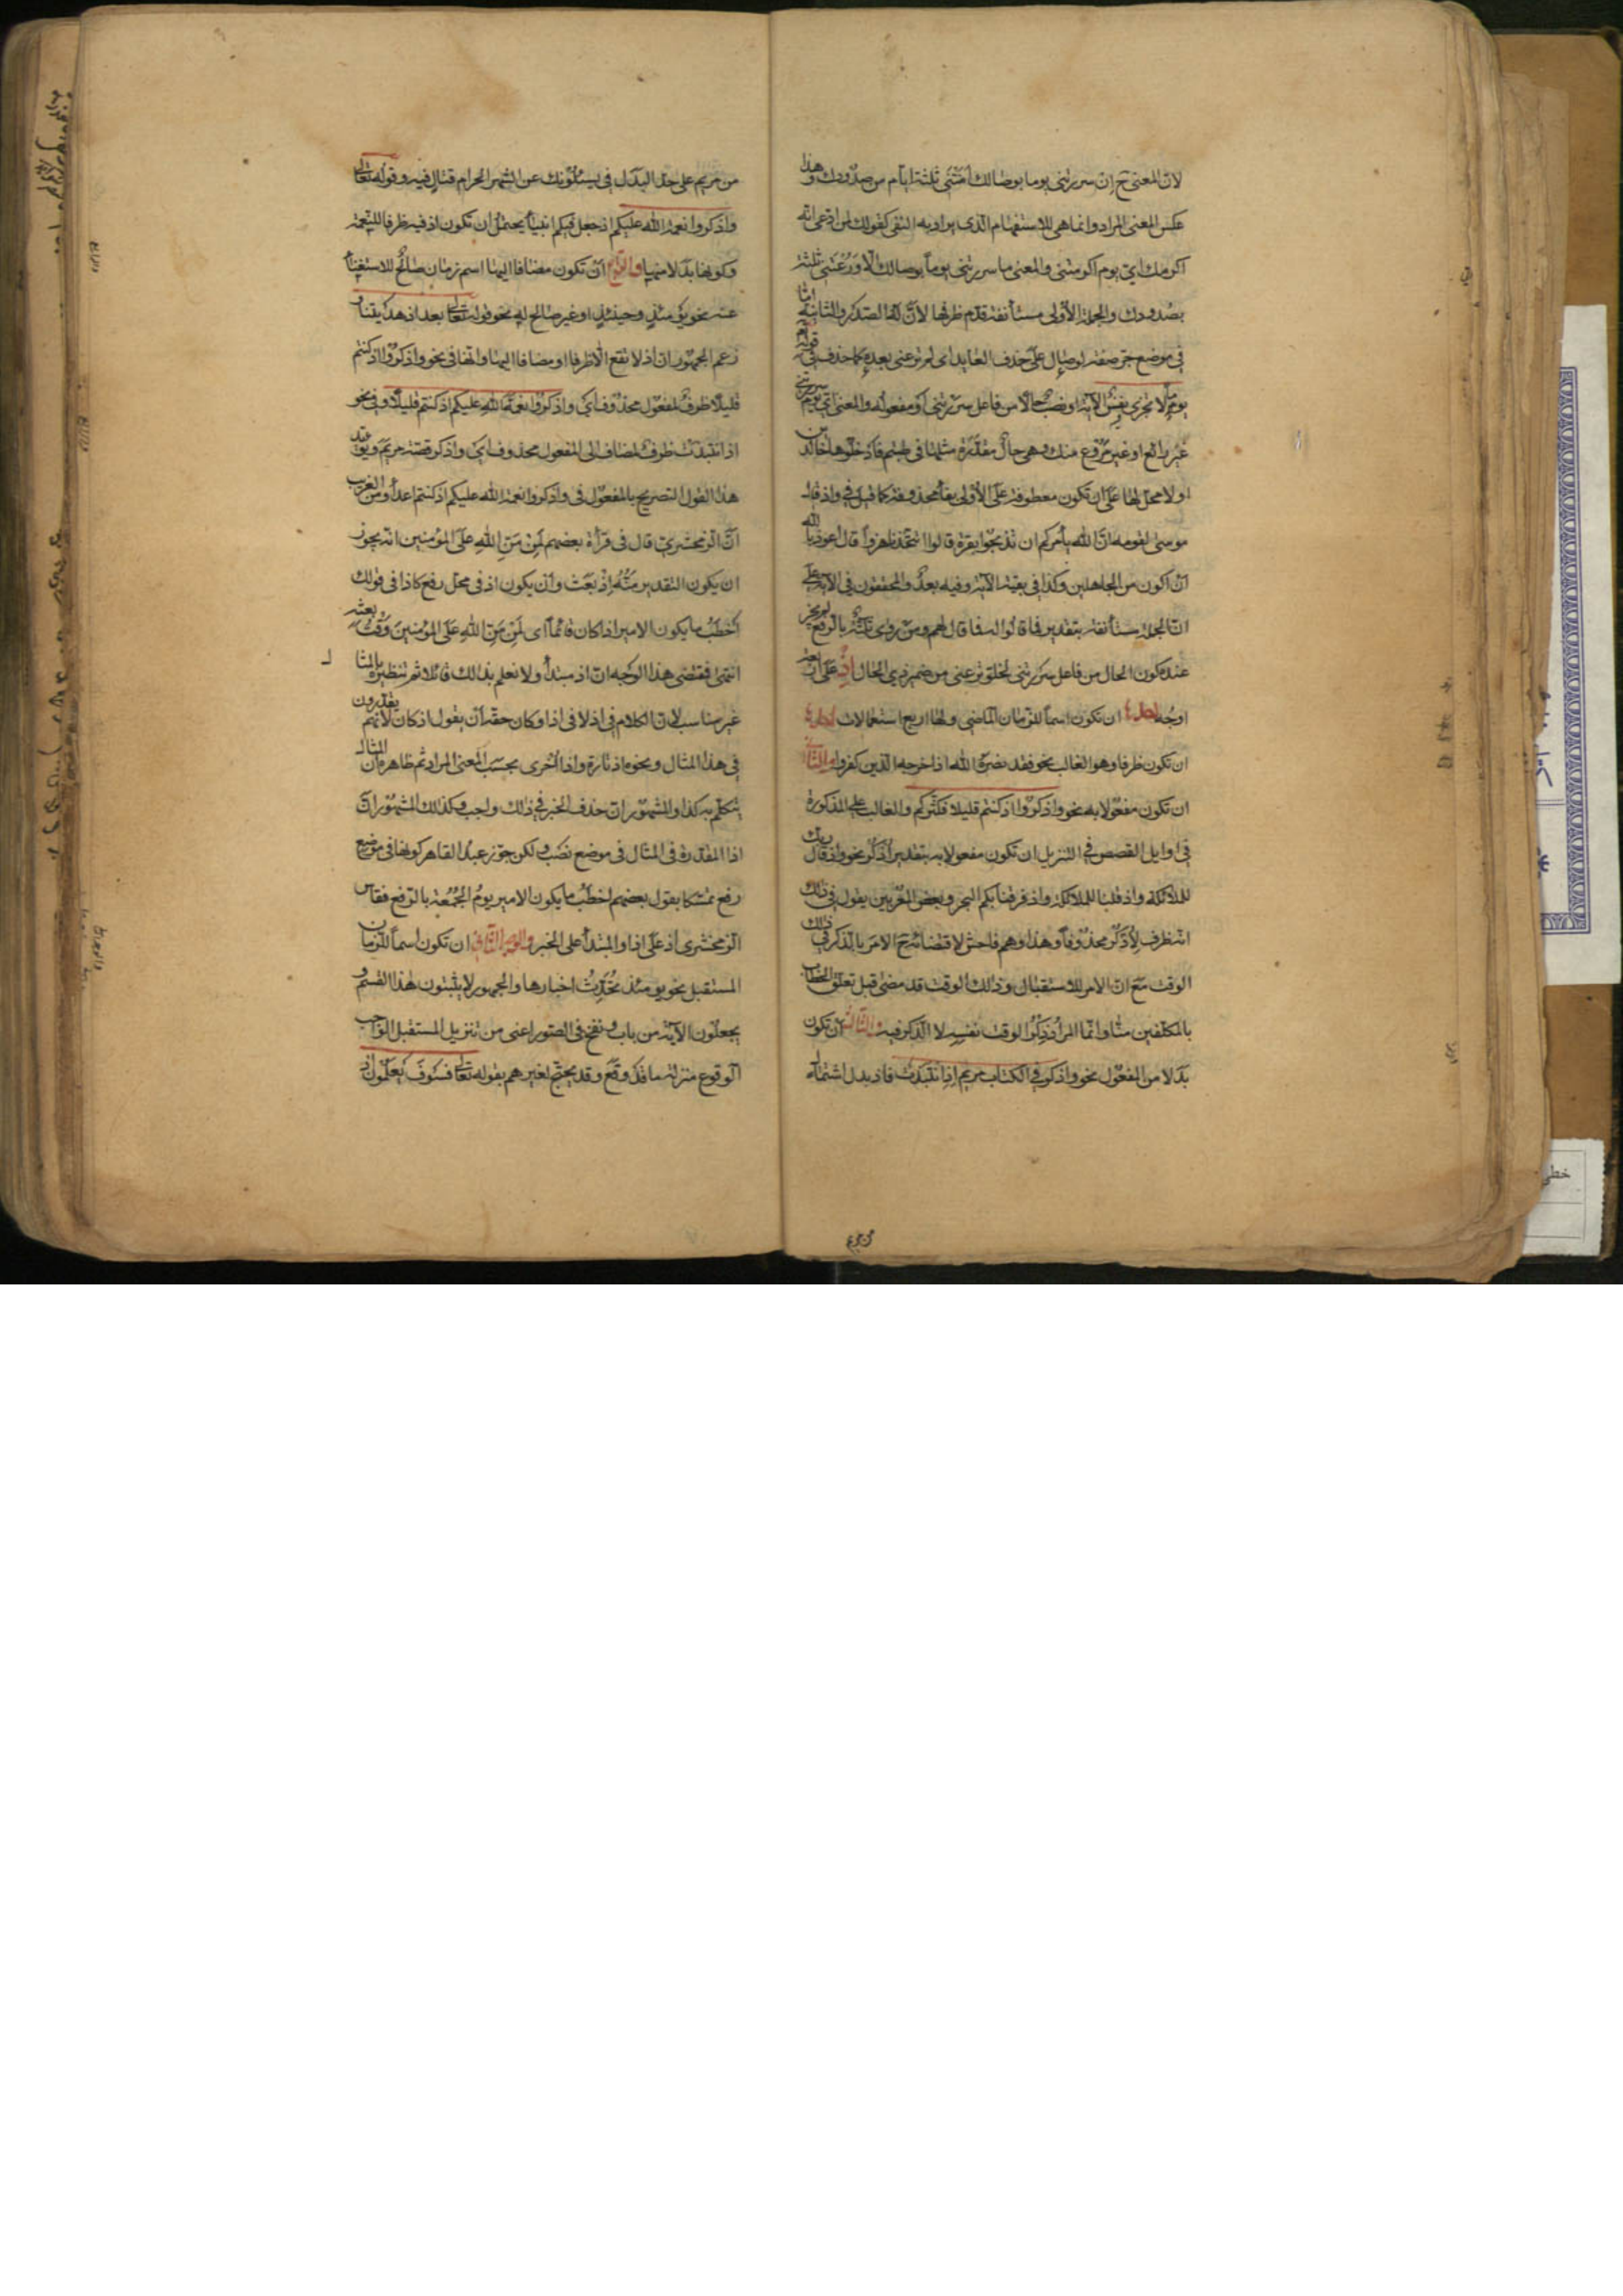 لان المعنى ح ان سررتنى يوما بوصالك امنتنى ثلثة ايام من صدودك وهذا
عكس المعنى المراد وانما هى للاستفهام الذى يراد به النفى كقولك لمن ادعى انه
اكرمك اى يوم اكرمتنى والمعنى ما سررتنى يوما بوصالك الا ورعتنى ثلثة
بصدودك والجملة الاولى مستأنفة قدم ظرفها لان له الصدر والثانية اما
فى موضع جر صفة لوصال على حذف العايد اى لم ترعنى بعده كما حذف فى قوله تع
يوما لا تجزى نفس الآية او نصب حالا من فاعل سررتنى او مفعوله والمعنى اى يوم سررتنى
غير رائع او غير مروع منك وهى حال مقدرة مثلها فى طبتم فادخلوها خالدين
او لا محل لها على ان تكون معطوفة على الاولى بفاء محذوفة كما قيل فى واذ قال
موسى لقومه ان الله يأمركم ان تذبحوا بقرة قالوا اتتخذنا هزوا قال اعوذ بالله
ان اكون من الجاهلين وكذا فى بقية الآية وفيه بعد والمحققون فى الآية على
ان الجمل مستأنفة بتقدير فما قالوا له فما قال لهم ومن روى ثلثة بالرفع لم يجز
عنده كون الحال من فاعل سررتنى لخلو ترعنى من ضمير ذى الحال اذ على اربعة
اوجه احدها ان تكون اسما للزمان الماضى ولها اربع استعمالات احدها
ان تكون ظرفا وهو الغالب نحو فقد نصره الله اذ اخرجه الذين كفروا والثانى
ان تكون مفعولا به نحو واذكروا اذ كنتم قليلا فكثركم والغالب على المذكورة
فى اوايل القصص فى التنزيل ان تكون مفعولا به بتقدير اذكر نحو واذ قال ربك
للملائكة واذ قلنا للملائكة واذ فرقنا بكم البحر وبعض المعربين يقول فى ذلك
انه ظرف لاذكر محذوفا وهذا وهم فاحش لاقتضائه ح الامر بالذكر فى ذلك
الوقت مع ان الامر للاستقبال وذلك الوقت قد مضى قبل تعلق الخطاب
بالمكلفين منا وانما المراد ذكر الوقت نفسه لا الذكر فيه الثالث ان تكون
بدلا من المفعول نحو واذكر فى الكتاب مريم اذ انتبذت فاذ بدل اشتمال
من مريم
من مريم على حد البدل فى يسئلونك عن الشهر الحرام قتال فيه وقوله تعالى
واذكروا نعمة الله عليكم اذ جعل فيكم انبياء يحتمل ان تكون اذ فيه ظرفا للنعمة
وكونها بدلا منها والرابع ان تكون مضافا اليها اسم زمان صالح للاستغناء
عنه نحو يومئذ وحينئذ او غير صالح له نحو قوله تعالى بعد اذ هديتنا و
زعم الجمهور ان اذ لا تقع الا ظرفا او مضافا اليها وانها فى نحو واذكروا اذ كنتم
قليلا ظرف لمفعول محذوف اى واذكروا نعمة الله عليكم اذ كنتم قليلا وفى نحو
اذ انتبذت ظرف لمضاف الى المفعول محذوف اى واذكر قصة مريم ويؤيد
هذا القول التصريح بالمفعول فى واذكروا نعمة الله عليكم اذ كنتم اعداء ومن الغريب
ان الزمخشرى قال فى قرأة بعضهم لمن من الله على المؤمنين انه يجوز
ان يكون التقدير منه اذ بعث وان يكون اذ فى محل رفع كاذا فى قولك
اخطب ما يكون الامير اذا كان قائما اى لمن من الله على المؤمنين وقت بعثه
انتهى فمقتضى هذا الوجه ان اذ مبتدأ ولا نعلم بذلك قائلا ثم تنظيره بالمثال
غير مناسب لان الكلام فى اذ لا فى اذا وكان حقه ان يقول اذ كان لانهم يقدرون
فى هذا المثال ونحوه اذ تارة واذا اخرى بحسب المعنى المراد ثم ظاهره ان المثال
يتكلم به كذا والمشهور ان حذف الخبر فى ذلك واجب وكذلك المشهور ان
اذا المقدرة فى المثال فى موضع نصب ولكن جوز عبد القاهر كونها فى موضع
رفع تمسكا بقول بعضهم اخطب ما يكون الامير يوم الجمعة بالرفع فقاس
الزمخشرى اذ على اذا والمبتدأ على الخبر والوجه الثانى ان تكون اسما للزمان
المستقبل نحو يومئذ تحدث اخبارها والجمهور لا يثبتون هذا القسم و
يجعلون الآية من باب ونفخ فى الصور اعنى من تنزيل المستقبل الواجب
الوقوع منزلة ما قد وقع وقد يحتج لغيرهم بقوله تعالى فسوف يعلمون اذ
خطى